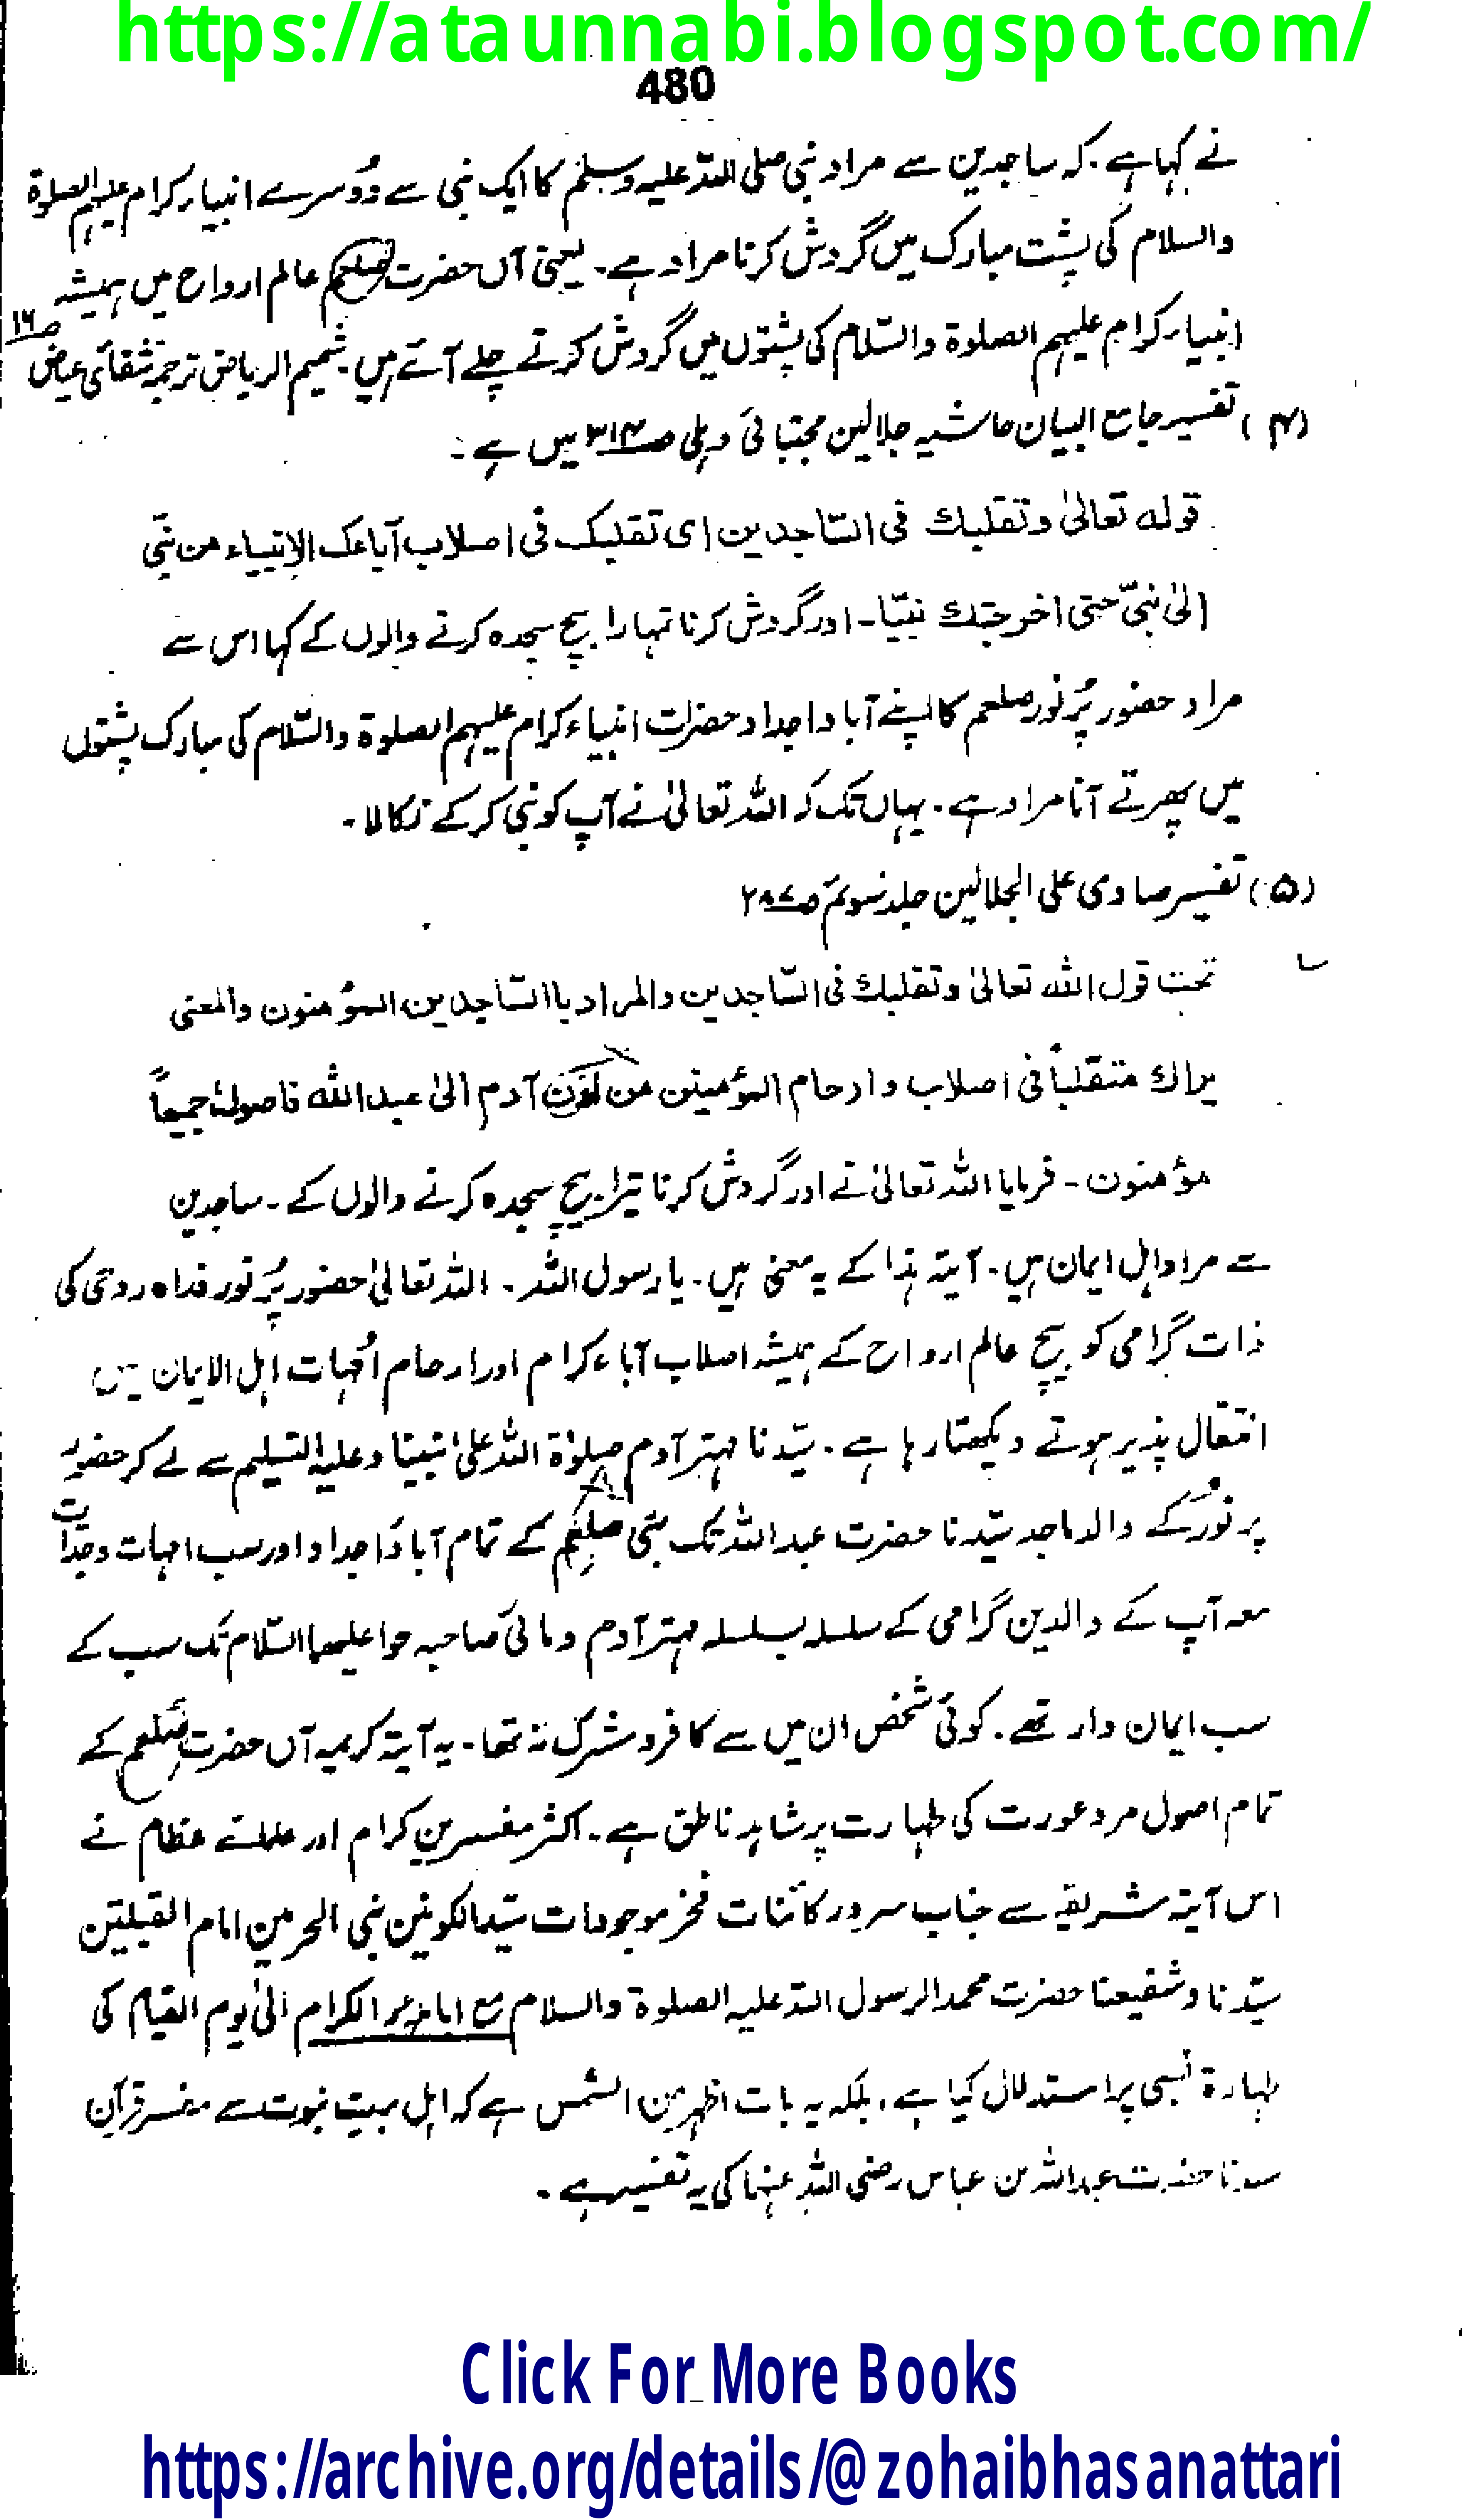 https://ataunnabi.blogspot.com/
480
نے کہا ہے. کہ ساجدین سے مراد نبی صلی اللہ علیہ وسلم کا ایک نبی سے دُوسرے انبیاء کرام علیہم الصلوۃ
والسلام کی پشت مبارک میں گردش کرنا مراد ہے. یعنی آں حضرت صلعم عالم ارواح میں ہمیشہ
انبیاء کرام علیہم الصلوۃ والسّلام کی پشتوں میں گردش کرتے چلے آتے ہیں. شمیم الریاض ترجمہ شفائے عیاض ص۱۶
(۴) تفسیر جامع البیان حاشیہ جلالین مجتبائی دہلی ص۳۱۴ میں ہے :
قولہ تعالیٰ وتقلبك فی السّاجدین ای تقلبک فی اصلاب آباءک الانبیاء من نبّی
الیٰ نبیّ حتی اخرجتك نبیّا۔ اور گردش کرنا تمہارا بیچ سجدہ کرنے والوں کے کہا اس سے
مراد حضور پُر نور صلعم کا اپنے آبا و اجداد حضرات انبیاء کرام علیہم الصلوۃ والسّلام کی مبارک پشتوں
میں پھرتے آنا مراد ہے. یہاں تک کہ اللہ تعالیٰ نے آپ کو نبی کر کے نکالا۔
(۵) تفسیر صاوی علی الجلالین جلد سوئم ص۲۸۷
تحت قول اللہ تعالیٰ وتقلبك فی السّاجدین والمراد باالسّاجدین المؤمنون والمعنی
یراك متقلباً فی اصلاب وارحام المؤمنین من لدن آدم الیٰ عبد اللہ فاصولہٗ جمیعاً
مؤمنون ۔ فرمایا اللہ تعالیٰ نے اور گردش کرنا تیرا بیچ سجدہ کرنے والوں کے ۔ ساجدین
سے مراد اہل ایمان ہیں. آیۃ ہذا کے یہ معنی ہیں. یا رسول اللہ ۔ اللہ تعالیٰ حضور پُر نور فداہ روحی کی
ذات گرامی کو بیچ عالم ارواح کے ہمیشہ اصلاب آباء کرام اور ارحام امُہات اہل الایمان میں
انتقال پذیر ہوتے دیکھتا رہا ہے. سیّدنا مہتر آدم صلوٰۃ اللہ علیٰ نبینا وعلیہ التسلیم سے لے کر حضور
پر نوُر کے والد ماجد سیّدنا حضرت عبد اللہ تک نبی صلعم کے تمام آبا و اجداد اور سب امہات وجدات
معہ آپ کے والدین گرامی کے سلسلہ بسلسلہ مہتر آدم و مائی صاحبہ حوا علیھما السّلام تک سب کے
سب ایمان دار تھے. کوئی شخص ان میں سے کافر و مشرک نہ تھا. یہ آیۃ کریمہ آں حضرت صلعم کے
تمام اصول مرد عورت کی طہارت پر شاہد ناطق ہے۔ اکثر مفسرین کرام اور علمائے عظام نے
اس آیۃ شریفہ سے جناب سرور کائنات فخر موجودات سیّد الکونین نبی الحرمین امام القبلیتن
سیّدنا وشفیعنا حضرت محمد الرسول اللہ علیہ الصلوۃ والسلام مع اباءہ الکرام الیٰ یوم القیام کی
طہارۃ نسبی پر استدلال کیا ہے. بلکہ یہ بات اظہر من الشمس ہے کہ اہل بیت نبوت سے مفسر قرآن
سیدنا حضرت عبداللہ بن عباس رضی اللہ عنہما کی یہ تفسیر ہے ۔
Click For More Books
https://archive.org/details/@zohaibhasanattari